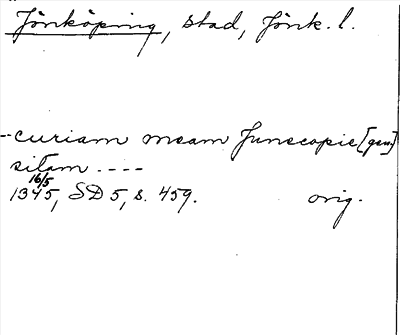 Jönköping, stad, Jönk. l.
-- curiam meam Junecopie [gen.]
sitam ----
16/5
1345, SD 5, s. 459. orig.